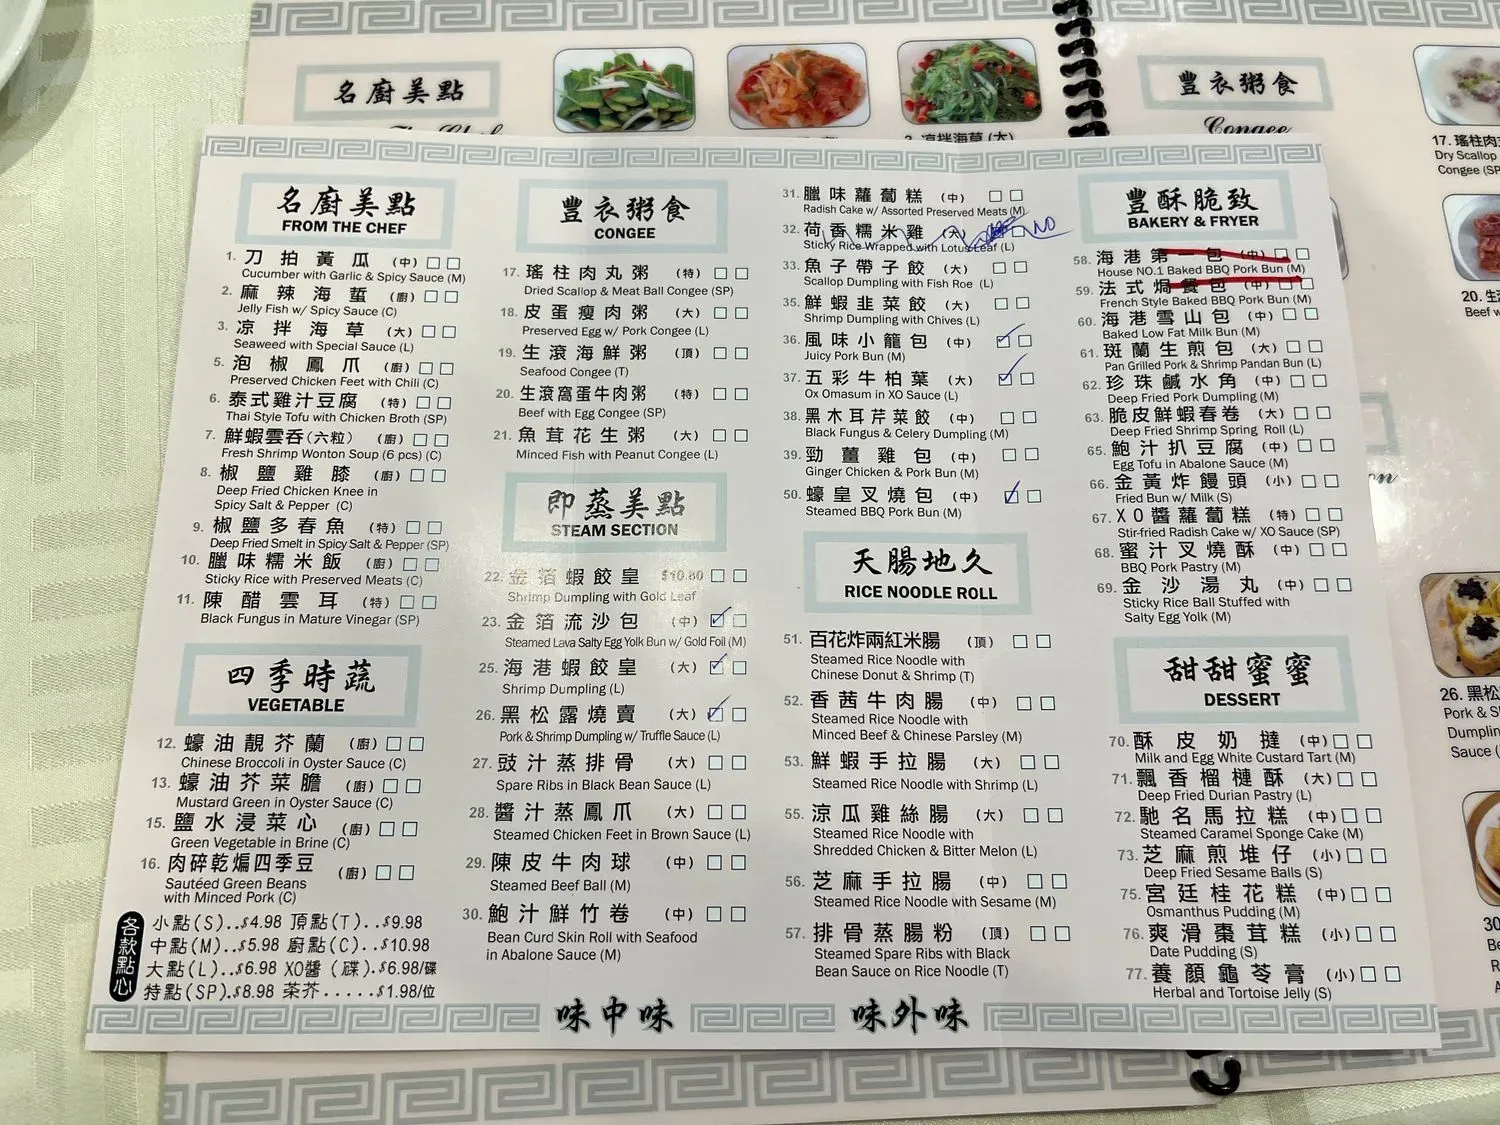 名廚美點
豐衣粥食
Congee
3. 涼拌海草 (大)
17. 瑤柱肉
Dry Scallop
Congee (SP
名廚美點
FROM THE CHEF
1. 刀拍黃瓜 (中)
Cucumber with Garlic & Spicy Sauce (M)
2. 麻辣海蜇 (廚)
Jelly Fish w/ Spicy Sauce (C)
3. 凉拌海草 (大)
Seaweed with Special Sauce (L)
5. 泡椒鳳爪 (廚)
Preserved Chicken Feet with Chili (C)
6. 泰式雞汁豆腐 (特)
Thai Style Tofu with Chicken Broth (SP)
7. 鮮蝦雲吞(六粒) (廚)
Fresh Shrimp Wonton Soup (6 pcs) (C)
8. 椒鹽雞膝 (廚)
Deep Fried Chicken Knee in
Spicy Salt & Pepper (C)
9. 椒鹽多春魚 (特)
Deep Fried Smelt in Spicy Salt & Pepper (SP)
10. 臘味糯米飯 (廚)
Sticky Rice with Preserved Meats (C)
11. 陳醋雲耳 (特)
Black Fungus in Mature Vinegar (SP)
四季時蔬
VEGETABLE
12. 蠔油靚芥蘭 (廚)
Chinese Broccoli in Oyster Sauce (C)
13. 蠔油芥菜膽 (廚)
Mustard Green in Oyster Sauce (C)
15. 鹽水浸菜心 (廚)
Green Vegetable in Brine (C)
16. 肉碎乾煸四季豆 (廚)
Sautéed Green Beans
with Minced Pork (C)
各款點心
小點(S)..$4.98 頂點(T)..$9.98
中點(M)..$5.98 廚點(C)..$10.98
大點(L)..$6.98 XO醬 (碟).$6.98/碟
特點(SP).$8.98 茶芥.....$1.98/位
豐衣粥食
CONGEE
17. 瑤柱肉丸粥 (特)
Dried Scallop & Meat Ball Congee (SP)
18. 皮蛋瘦肉粥 (大)
Preserved Egg w/ Pork Congee (L)
19. 生滾海鮮粥 (頂)
Seafood Congee (T)
20. 生滾窩蛋牛肉粥 (特)
Beef with Egg Congee (SP)
21. 魚茸花生粥 (大)
Minced Fish with Peanut Congee (L)
即蒸美點
STEAM SECTION
22. 金箔蝦餃皇 $10.80
Shrimp Dumpling with Gold Leaf
23. 金箔流沙包 (中)
Steamed Lava Salty Egg Yolk Bun w/ Gold Foil (M)
25. 海港蝦餃皇 (大)
Shrimp Dumpling (L)
26. 黑松露燒賣 (大)
Pork & Shrimp Dumpling w/ Truffle Sauce (L)
27. 豉汁蒸排骨 (大)
Spare Ribs in Black Bean Sauce (L)
28. 醬汁蒸鳳爪 (大)
Steamed Chicken Feet in Brown Sauce (L)
29. 陳皮牛肉球 (中)
Steamed Beef Ball (M)
30. 鮑汁鮮竹卷 (中)
Bean Curd Skin Roll with Seafood
in Abalone Sauce (M)
31. 臘味蘿蔔糕 (中)
Radish Cake w/ Assorted Preserved Meats (M)
32. 荷香糯米雞 (大) NO
Sticky Rice Wrapped with Lotus Leaf (L)
33. 魚子帶子餃 (大)
Scallop Dumpling with Fish Roe (L)
35. 鮮蝦韭菜餃 (大)
Shrimp Dumpling with Chives (L)
36. 風味小籠包 (中)
Juicy Pork Bun (M)
37. 五彩牛柏葉 (大)
Ox Omasum in XO Sauce (L)
38. 黑木耳芹菜餃 (中)
Black Fungus & Celery Dumpling (M)
39. 勁薑雞包 (中)
Ginger Chicken & Pork Bun (M)
50. 蠔皇叉燒包 (中)
Steamed BBQ Pork Bun (M)
天腸地久
RICE NOODLE ROLL
51. 百花炸兩紅米腸 (頂)
Steamed Rice Noodle with
Chinese Donut & Shrimp (T)
52. 香茜牛肉腸 (中)
Steamed Rice Noodle with
Minced Beef & Chinese Parsley (M)
53. 鮮蝦手拉腸 (大)
Steamed Rice Noodle with Shrimp (L)
55. 涼瓜雞絲腸 (大)
Steamed Rice Noodle with
Shredded Chicken & Bitter Melon (L)
56. 芝麻手拉腸 (中)
Steamed Rice Noodle with Sesame (M)
57. 排骨蒸腸粉 (頂)
Steamed Spare Ribs with Black
Bean Sauce on Rice Noodle (T)
豐酥脆致
BAKERY & FRYER
58. 海港第一包 (中)
House NO.1 Baked BBQ Pork Bun (M)
59. 法式焗餐包 (中)
French Style Baked BBQ Pork Bun (M)
60. 海港雪山包 (中)
Baked Low Fat Milk Bun (M)
61. 斑蘭生煎包 (大)
Pan Grilled Pork & Shrimp Pandan Bun (L)
62. 珍珠鹹水角 (中)
Deep Fried Pork Dumpling (M)
63. 脆皮鮮蝦春卷 (大)
Deep Fried Shrimp Spring Roll (L)
65. 鮑汁扒豆腐 (中)
Egg Tofu in Abalone Sauce (M)
66. 金黃炸饅頭 (小)
Fried Bun w/ Milk (S)
67. XO醬蘿蔔糕 (特)
Stir-fried Radish Cake w/ XO Sauce (SP)
68. 蜜汁叉燒酥 (中)
BBQ Pork Pastry (M)
69. 金沙湯丸 (中)
Sticky Rice Ball Stuffed with
Salty Egg Yolk (M)
甜甜蜜蜜
DESSERT
70. 酥皮奶撻 (中)
Milk and Egg White Custard Tart (M)
71. 飄香榴槤酥 (大)
Deep Fried Durian Pastry (L)
72. 馳名馬拉糕 (中)
Steamed Caramel Sponge Cake (M)
73. 芝麻煎堆仔 (小)
Deep Fried Sesame Balls (S)
75. 宮廷桂花糕 (中)
Osmanthus Pudding (M)
76. 爽滑棗茸糕 (小)
Date Pudding (S)
77. 養顏龜苓膏 (小)
Herbal and Tortoise Jelly (S)
味中味
味外味
20. 生
Beef w
26. 黑松
Pork & S
Dumplin
Sauce (
30